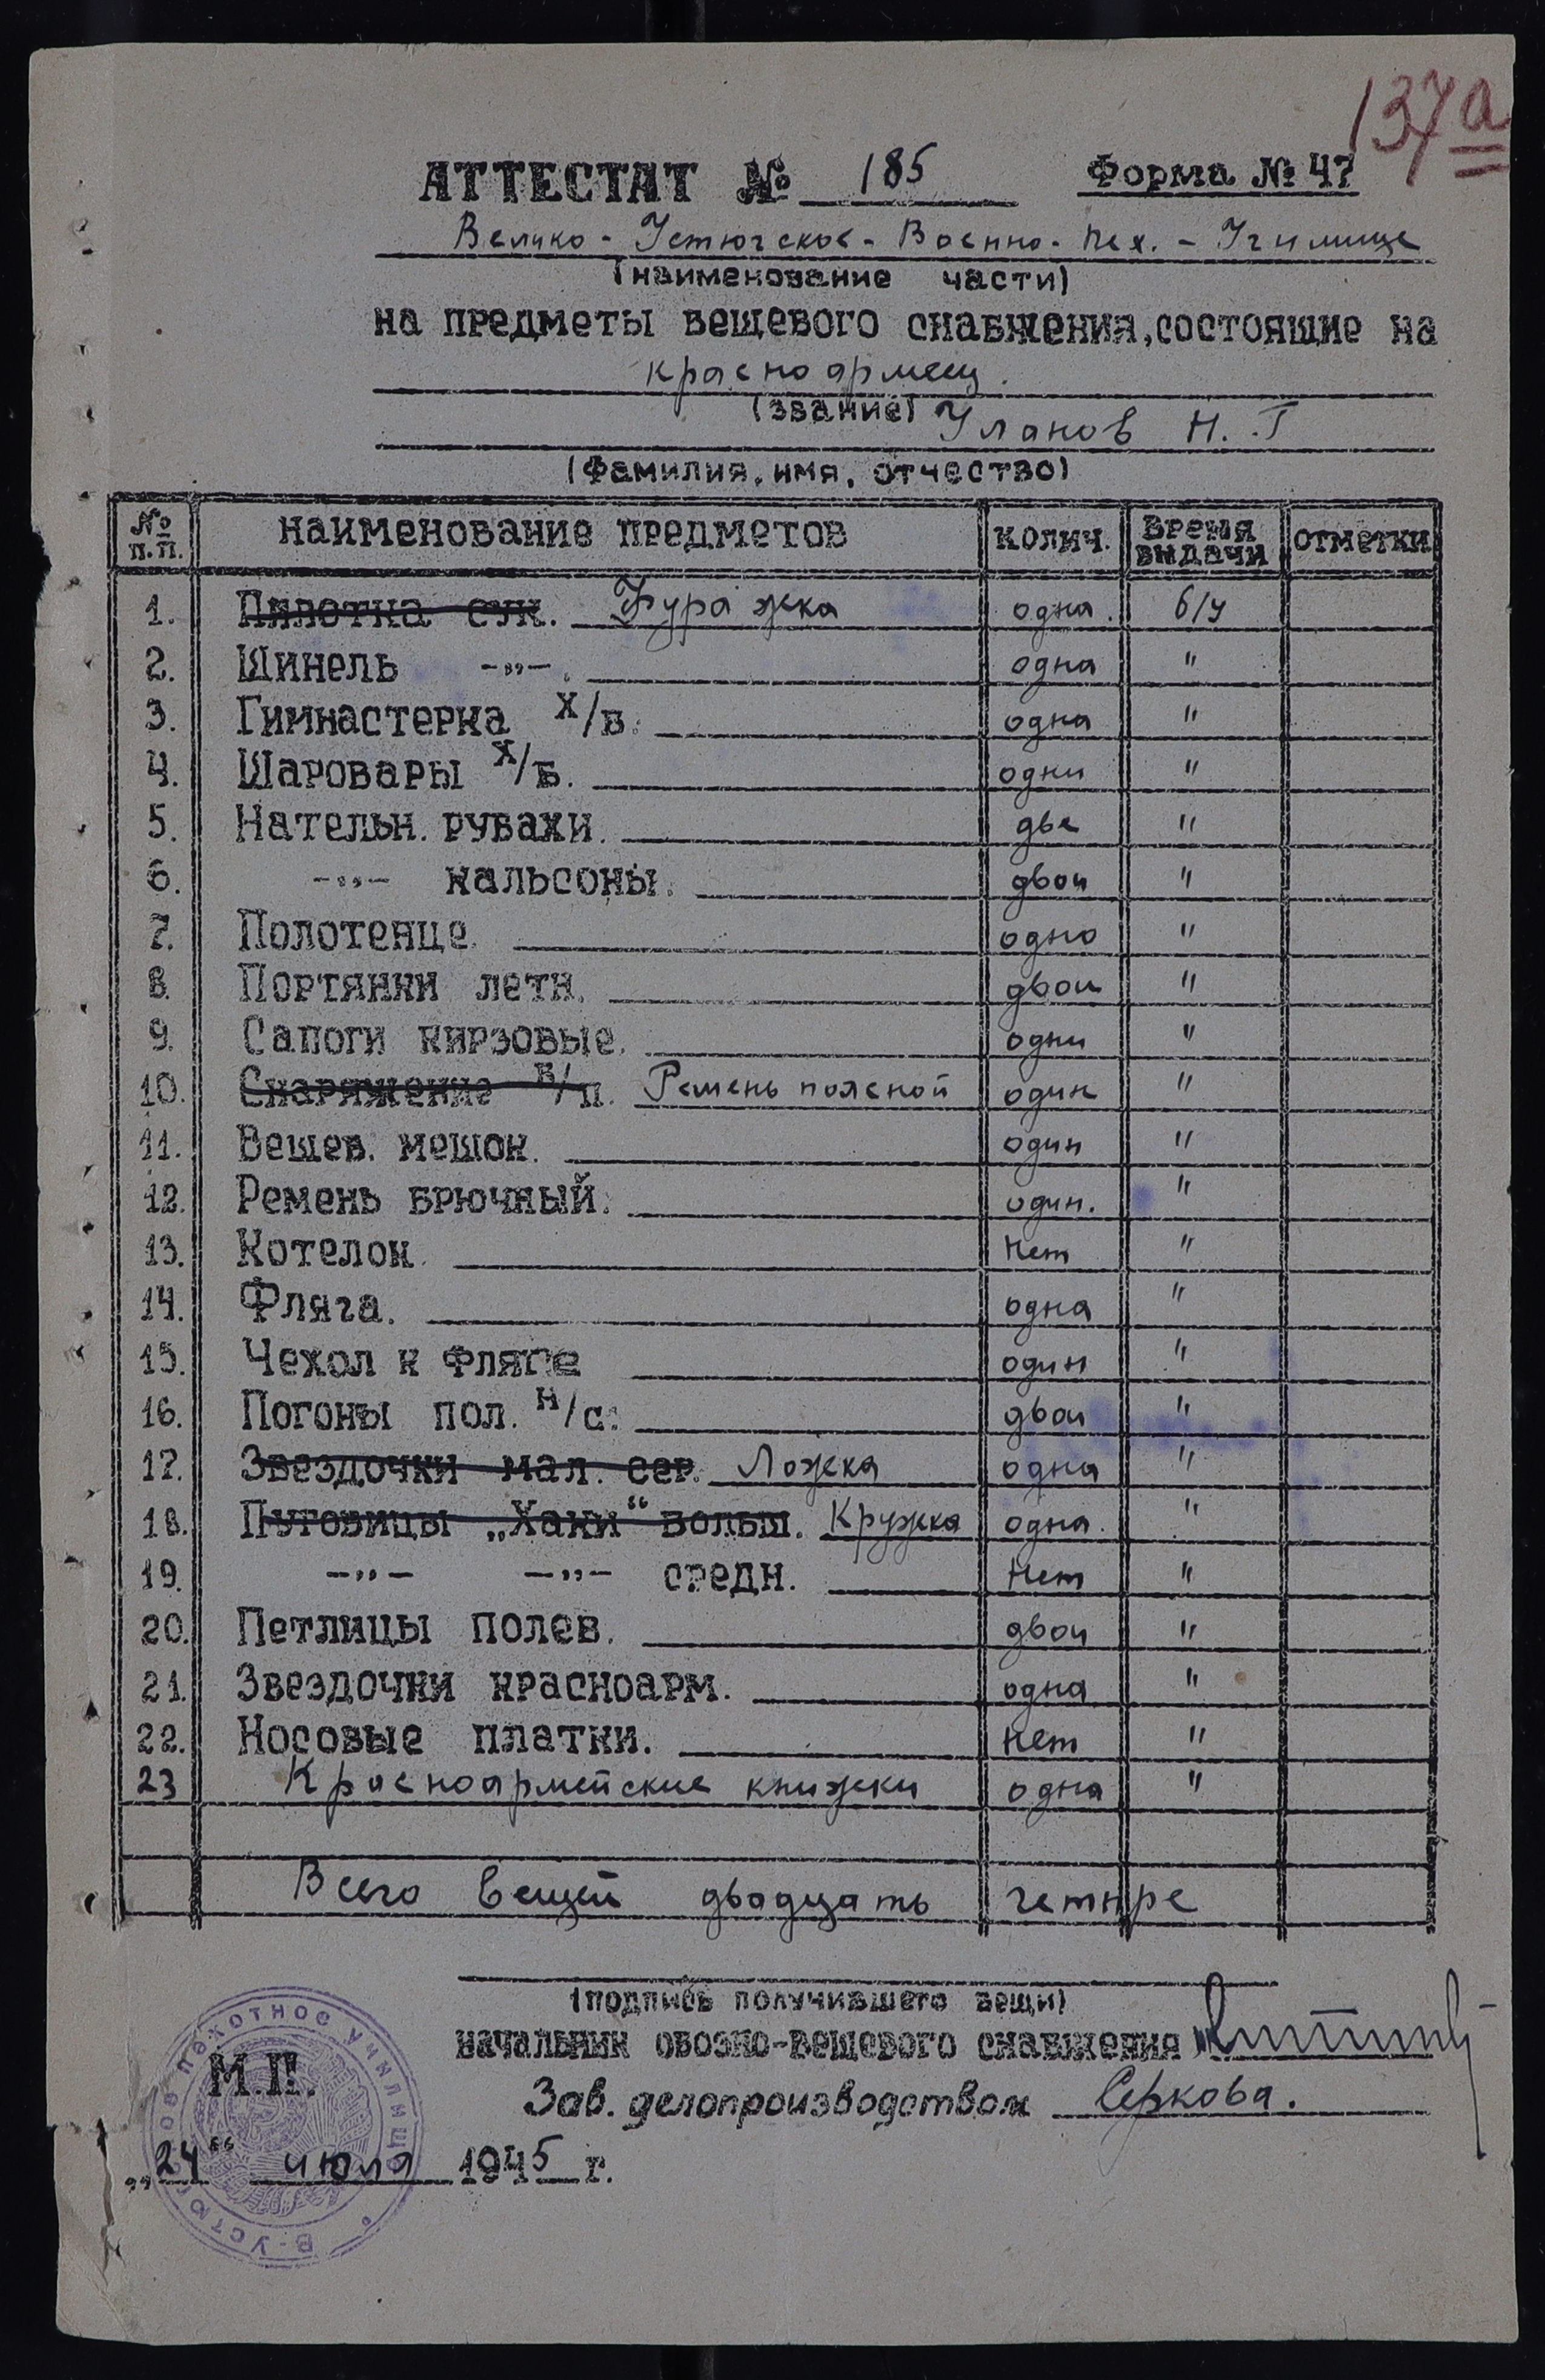 137а
АТТЕСТАТ № 185 Форма № 47
Велико-Устюгское-Военно-Пех.-Училище
(наименование части)
на предметы вещевого снабжения, состоящие на
красноармеец.
(звание)
Уланов Н. Г
(Фамилия, имя, отчество)
№ п.п. наименование предметов колич. Время выдачи отметки
1. Пилотка сук. Фуражка одна. б/у
2. Шинель -„- . одна "
3. Гимнастерка х/б. одна "
4. Шаровары х/б. одни "
5. Нательн. рубахи. две "
6. -„- кальсоны. двои "
7. Полотенце. одно "
8. Портянки летн. двои "
9. Сапоги кирзовые. одни "
10. Снаряжение в/п. Ремень поясной один "
11. Вещев. мешок. один "
12. Ремень брючный. один. "
13. Котелок. Нет "
14. Фляга. одна "
15. Чехол к фляге один "
16. Погоны пол. н/с. двои "
17. Звездочки мал. сер. Ложка одна "
18. Пуговицы „Хаки“ больш. Кружка одна. "
19. -„- -„- средн. Нет "
20. Петлицы полев. двои "
21. Звездочки красноарм. одна "
22. Носовые платки. нет "
23 Красноармейские книжки одна "
Всего вещей двадцать четыре
(подпись получившего вещи)
начальник обозно-вещевого снабжения
М.П.
Зав. делопроизводством Серкова.
„24“ июля 1945 г.
В-УСТЮГСКОЕ ПЕХОТНОЕ УЧИЛИЩЕ